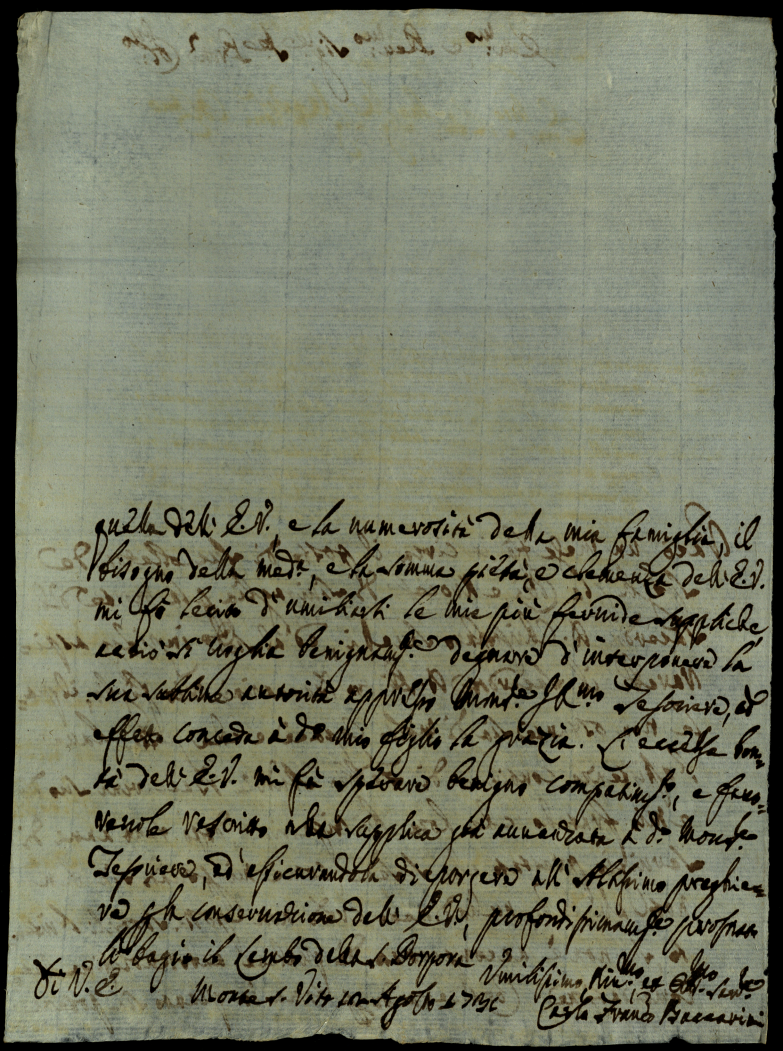 quella dell' E.V., e la numerosità della mia famiglia, il
bisogno della med.a, e la somma pietà, e clemenza dell' E.V.
mi fò lecito d'umiliarli le mie più fervide suppliche,
acciò si voglia benignam.e degnare d'interponere la
sua sublime autorità appresso Mons.e Ill.mo Tesoriere, ad
effetto conceda à d.o mio figlio la grazia. L'eccelsa bon-
tà dell' E.V. mi fà sperare benigno compatim.to, e favo-
revole rescritto alla supplica già avvanzata à d.o Mons.e
Tesoriere, ed assicurandola di porgere all' Altissimo preghie-
re p la conservazione dell' E.V., profondissimam.e prostrato
li bagio il lembo della S. Porpora
Di V.E. Umilissimo, ser.re
Monte S. Vito Agosto Carlo Franc.o Baccarini